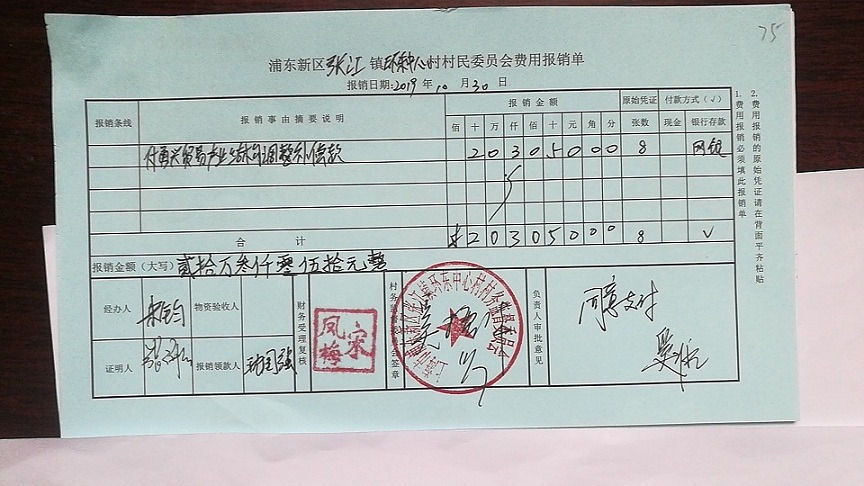 75
浦东新区张江镇环东中心村村民委员会费用报销单
报销日期:2019年10月30日
报销条线 报销事由摘要说明 报销金额 原始凭证 付款方式(√)
佰 十 万 仟 佰 十 元 角 分 张数 现金 银行存款
付勇兴贸易产业结构调整补偿款 20305000 8 网银
合计 ¥20305000 8 √
报销金额(大写) 贰拾万叁仟零伍拾元整
经办人 物资验收人
证明人 报销领款人
财务受理复核
宋凤梅
村务监督委员会签章
张江镇环东中心村村务监督委员会
负责人审批意见
同意支付
1.费用报销必须填此报销单
2.费用报销的原始凭证请在背面平齐粘贴